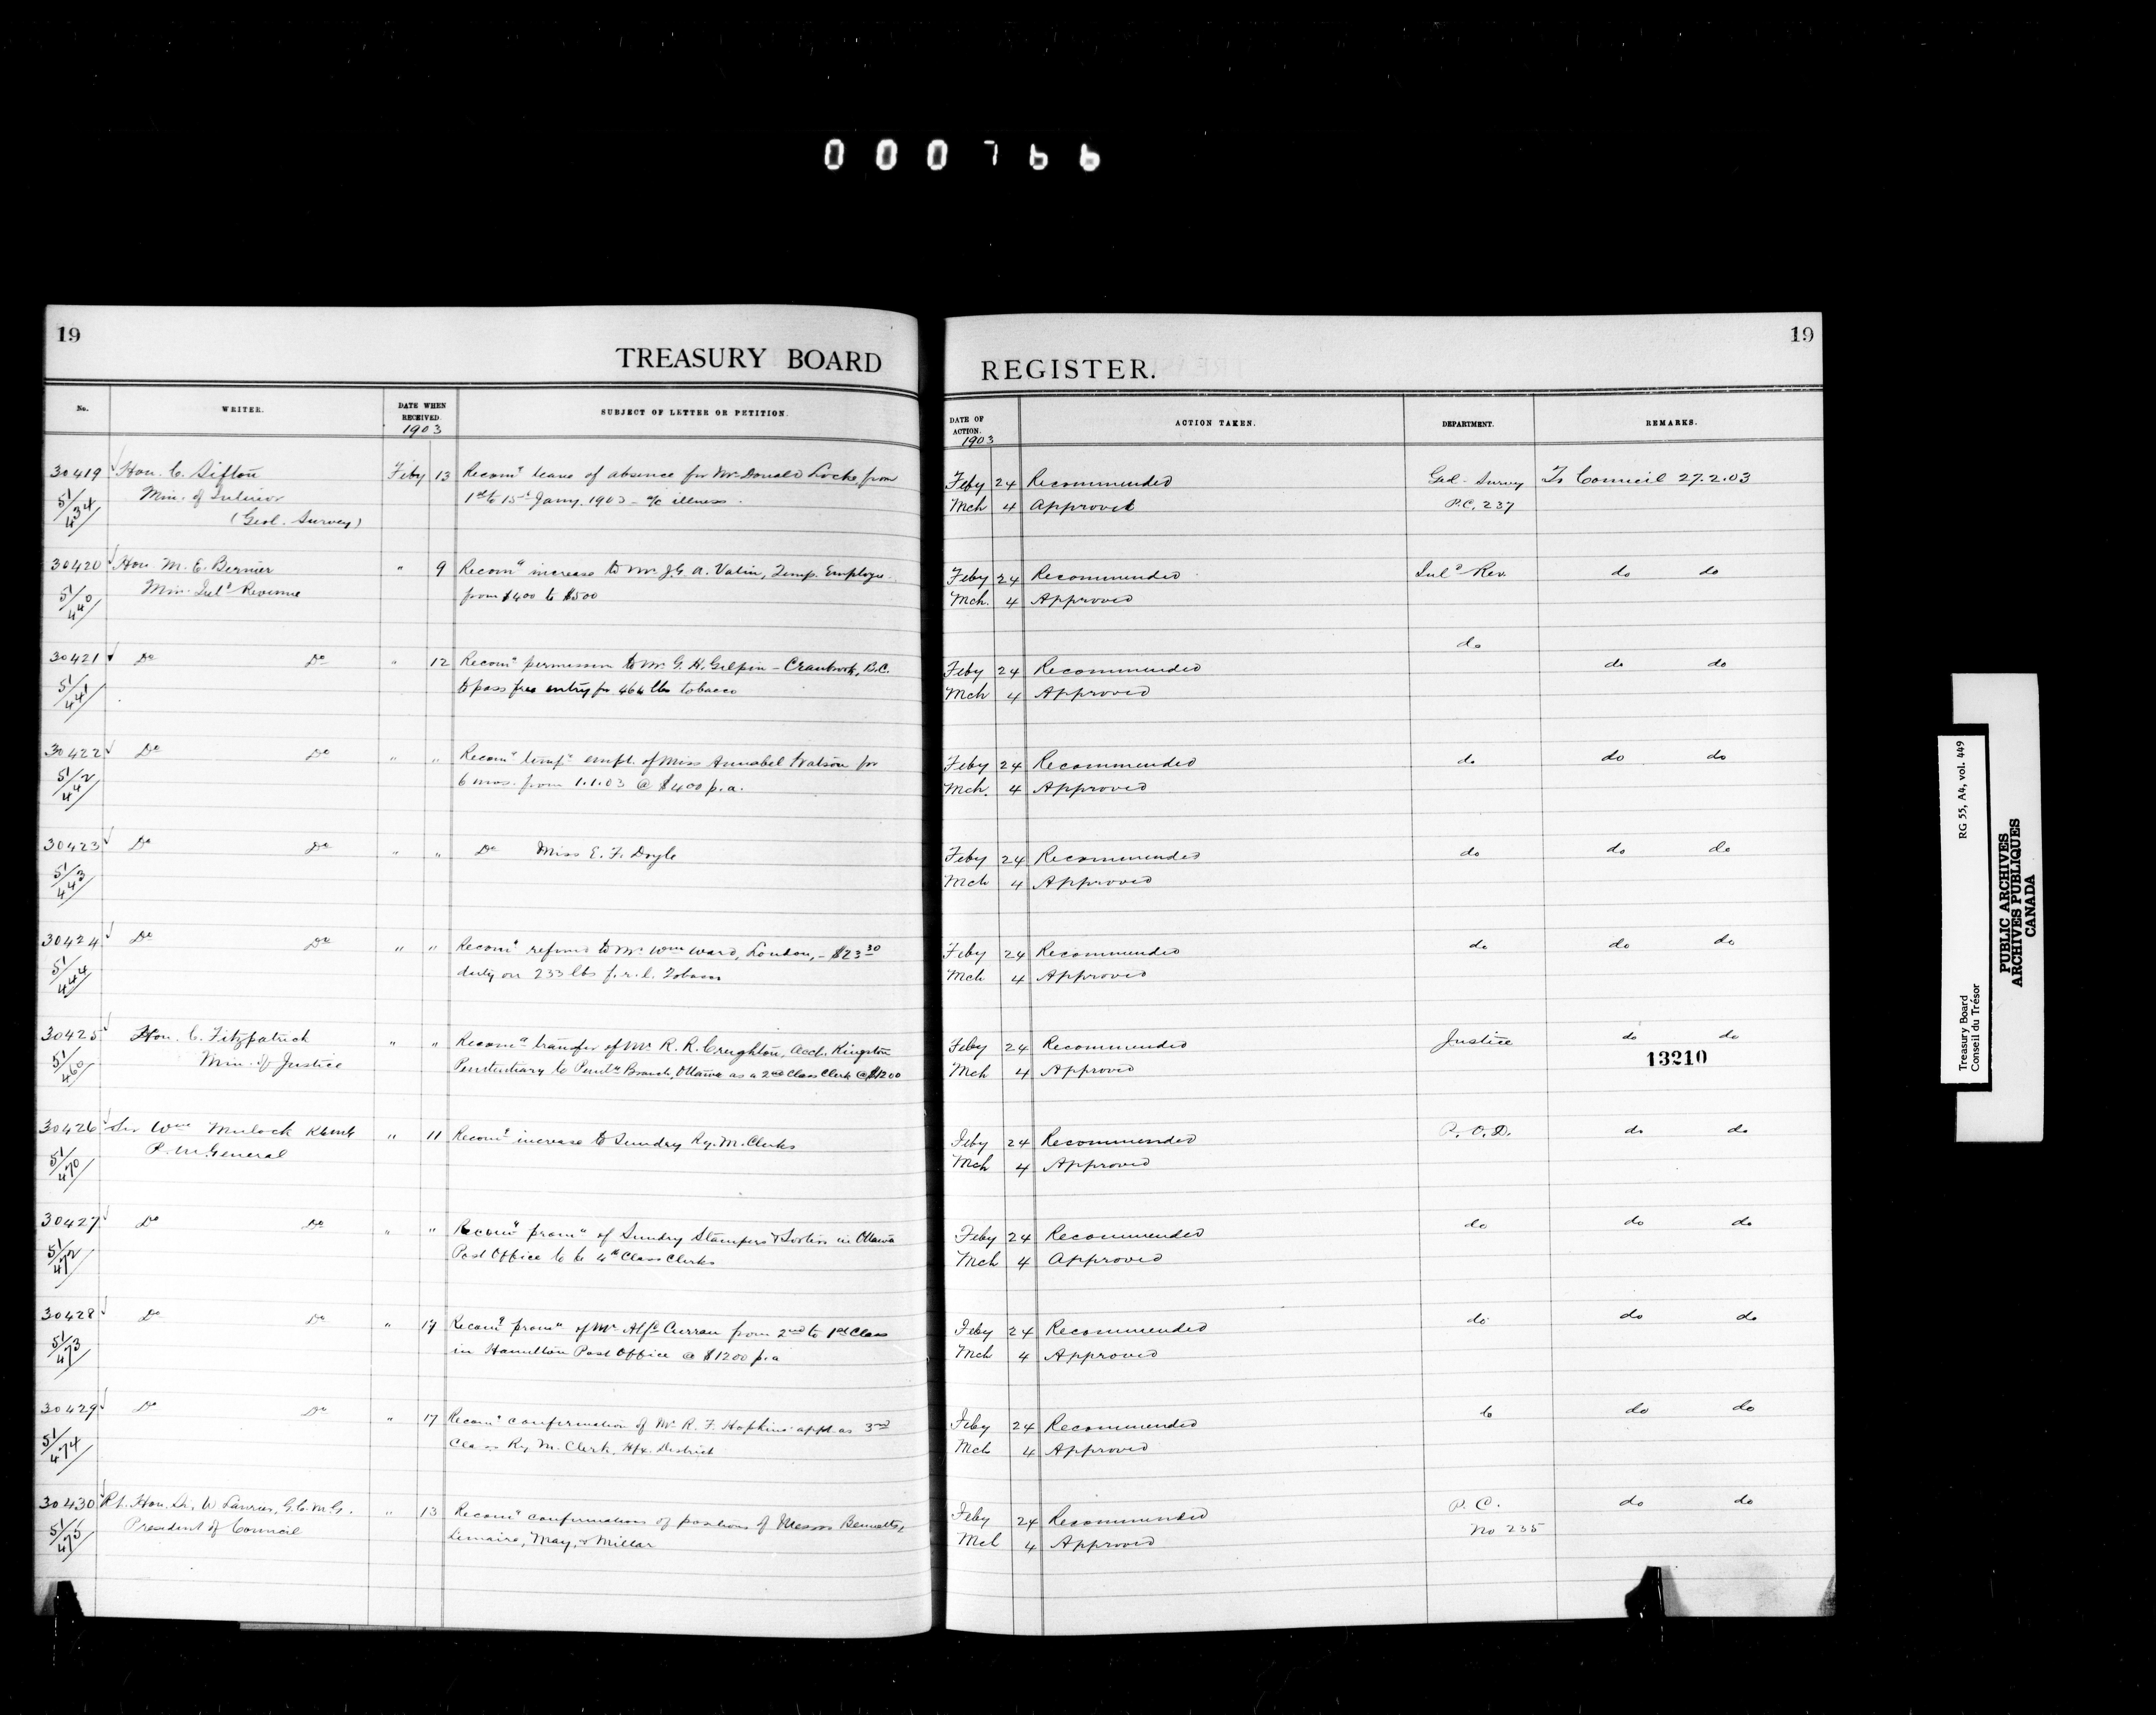 000766
19
TREASURY BOARD
No.
WRITER.
DATE WHEN RECEIVED.
1903
SUBJECT OF LETTER OR PETITION.
30419 Hon. C. Sifton Feby 13 Recomg leave of absence for Mr Donald Locke from
51/434 Min. of Interior 1st to 15th Jany. 1903 - a/c illness.
(Geol. Survey)
30420 Hon. M. E. Bernier " 9 Recomg increase to Mr J. G. A. Valin, Temp. Employee
51/440 Min. Inld Revenue from $400 to $500
30421 Do Do " 12 Recomg permission to Mr G. H. Gilpin - Cranbrook, B.C.
51/441 to pass free entry for 464 lbs tobacco
30422 Do Do " " Recomg tempy empl. of Miss Annabel Watson for
51/442 6 mos. from 1.1.03 @ $400 p.a.
30423 Do Do " " Do Miss E. F. Doyle
51/443
30424 Do Do " " Recomg refund to Mr Wm Ward, London, - $23.30
51/444 duty on 233 lbs f.r.l. Tobacco
30425 Hon. C. Fitzpatrick " " Recomg transfer of Mr R. R. Creighton, Acct. Kingston
51/460 Min. of Justice Penitentiary to Penty Branch, Ottawa as a 2nd Class Clerk @ $1200
30426 Sir Wm Mulock KCMG " 11 Recomg increase to Sundry Ry. M. Clerks
51/470 P. M. General
30427 Do Do " " Recomg promn of Sundry Stampers & Sorters in Ottawa
51/472 Post Office to be 4th Class Clerks
30428 Do Do " 17 Recomg promn of Mr Alfd Curran from 2nd to 1st Class
51/473 in Hamilton Post Office @ $1200 p.a
30429 Do Do " 17 Recomg confirmation of Mr R. F. Hopkins appt. as 3rd
51/474 Class Ry M. Clerk, Hfx. District
30430 Rt. Hon. Sir W Laurier, G.C.M.G. " 13 Recomg confirmation of positions of Messrs Bennetts,
51/475 President of Council Lemaire, May, & Millar
19
REGISTER.
DATE OF ACTION.
1903
ACTION TAKEN.
DEPARTMENT.
REMARKS.
Feby 24 Recommended Geol - Survey To Council 27.2.03
Mch 4 Approved P.C. 237
Feby 24 Recommended Inld Rev. do do
Mch. 4 Approved
do
Feby 24 Recommended do do
Mch 4 Approved
Feby 24 Recommended do do do
Mch. 4 Approved
Feby 24 Recommended do do do
Mch 4 Approved
Feby 24 Recommended do do do
Mch 4 Approved
Feby 24 Recommended Justice do do
Mch 4 Approved 13210
Feby 24 Recommended P. O. D. do do
Mch 4 Approved
Feby 24 Recommended do do do
Mch 4 Approved
Feby 24 Recommended do do do
Mch 4 Approved
Feby 24 Recommended do do do
Mch 4 Approved
Feby 24 Recommended P. C. do do
Mch 4 Approved No 235
Treasury Board RG 55, A4, vol. 449
Conseil du Trésor
PUBLIC ARCHIVES
ARCHIVES PUBLIQUES
CANADA